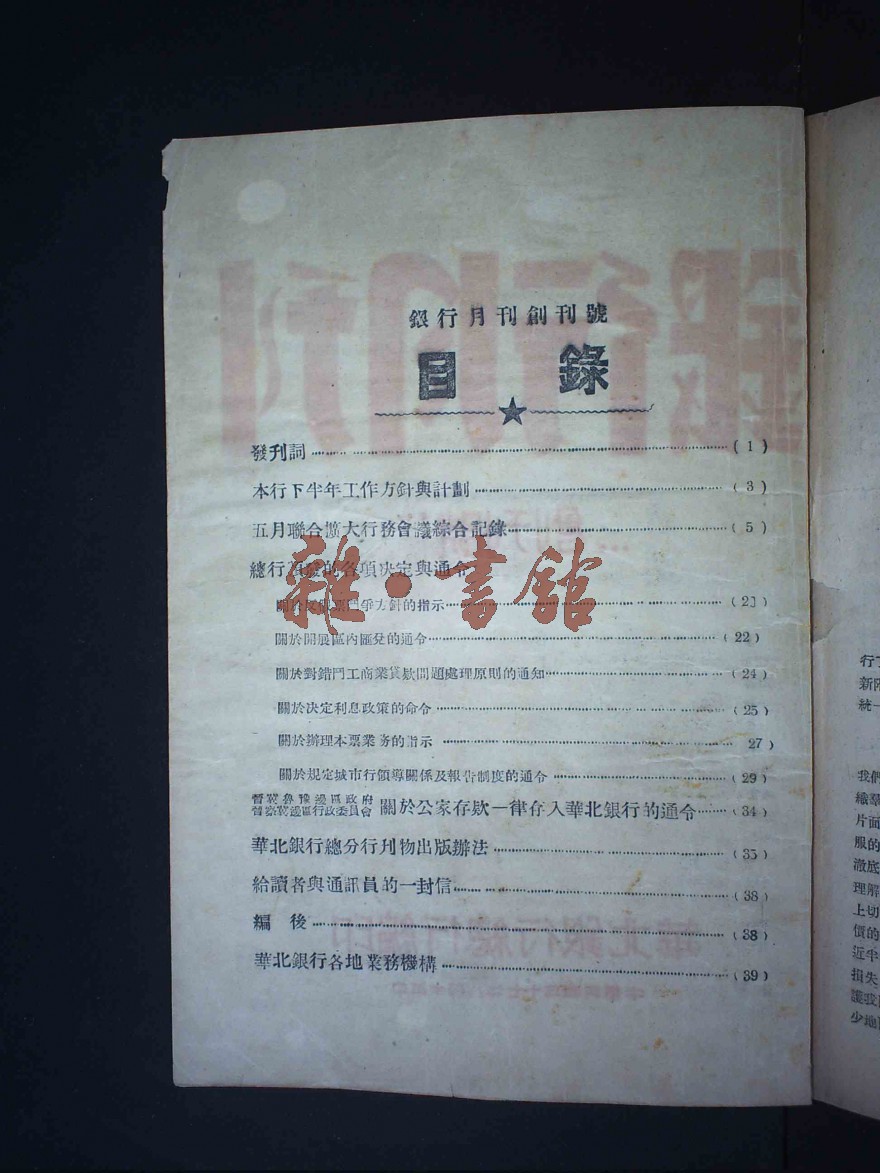 銀行月刊創刊號
目錄
發刊詞 (1)
本行下半年工作方針與計劃 (3)
五月聯合擴大行務會議綜合記錄 (5)
總行頒發的各項決定與通令
雜·書館
關於反假票鬥爭方針的指示 (2
關於開展區內匯兌的通令 (22)
關於對錯鬥工商業貸款問題處理原則的通知 (24)
關於決定利息政策的命令 (25)
關於辦理本票業务的指示 27)
關於規定城市行領導關係及報告制度的通令 (29)
晉冀魯豫邊區政府
晉察冀邊區行政委員會 關於公家存款一律存入華北銀行的通令 (34)
華北銀行總分行刊物出版辦法 (35)
給讀者與通訊員的一封信 (38)
編後 (38)
華北銀行各地業務機構 (39)
行下
新階
統一
我們
織羣
片面
服的
澈底
理解
上切
價的
近半
損失
護我
少地